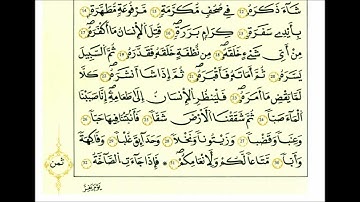 شَآءَ ذَكَرَهُۥ ١٢ فِي صُحُفٖ مُّكَرَّمَةٖ ١٣ مَّرۡفُوعَةٖ مُّطَهَّرَةِۭ ١٤
بِأَيۡدِي سَفَرَةٖ ١٥ كِرَامِۭ بَرَرَةٖ ١٦ قُتِلَ ٱلۡإِنسَٰنُ مَآ أَكۡفَرَهُۥ ١٧
مِنۡ أَيِّ شَيۡءٍ خَلَقَهُۥ ١٨ مِن نُّطۡفَةٍ خَلَقَهُۥ فَقَدَّرَهُۥ ١٩ ثُمَّ ٱلسَّبِيلَ
يَسَّرَهُۥ ٢٠ ثُمَّ أَمَاتَهُۥ فَأَقۡبَرَهُۥ ٢١ ثُمَّ إِذَا شَآءَ أَنشَرَهُۥ ٢٢ كَلَّا
لَمَّا يَقۡضِ مَآ أَمَرَهُۥ ٢٣ فَلۡيَنظُرِ ٱلۡإِنسَٰنُ إِلَىٰ طَعَامِهِۦٓ ٢٤ إِنَّا صَبَبۡنَا
ٱلۡمَآءَ صَبّٗا ٢٥ ثُمَّ شَقَقۡنَا ٱلۡأَرۡضَ شَقّٗا ٢٦ فَأَنۢبَتۡنَا فِيهَا حَبّٗا ٢٧
وَعِنَبٗا وَقَضۡبٗا ٢٨ وَزَيۡتُونٗا وَنَخۡلٗا ٢٩ وَحَدَآئِقَ غُلۡبٗا ٣٠ وَفَٰكِهَةٗ
وَأَبّٗا ٣١ مَّتَٰعٗا لَّكُمۡ وَلِأَنۡعَٰمِكُمۡ ٣٢ فَإِذَا جَآءَتِ ٱلصَّآخَّةُ ٣٣
ثمن
يَوۡمَ يَفِرُّ